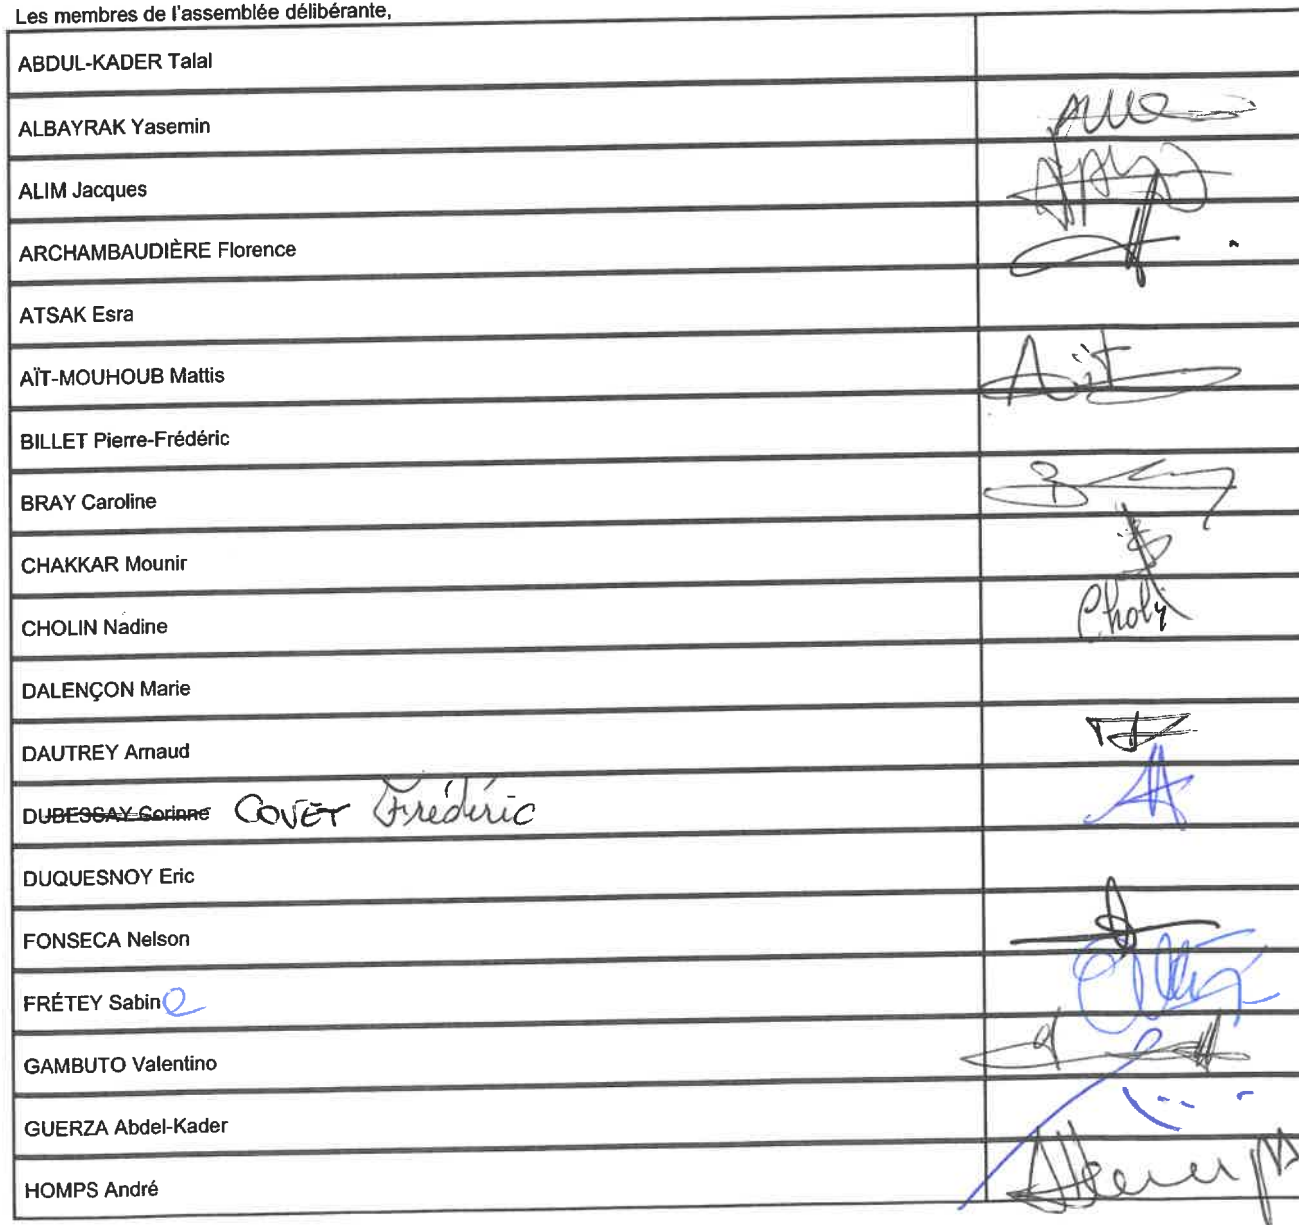 Les membres de l'assemblée délibérante,
ABDUL-KADER Talal
ALBAYRAK Yasemin
ALIM Jacques
ARCHAMBAUDIÈRE Florence
ATSAK Esra
AÏT-MOUHOUB Mattis
Aït
BILLET Pierre-Frédéric
BRAY Caroline
CHAKKAR Mounir
CHOLIN Nadine
DALENÇON Marie
DAUTREY Arnaud
DUBESSAY Corinne COVET Frédéric
DUQUESNOY Eric
FONSECA Nelson
FRÉTEY Sabine
GAMBUTO Valentino
GUERZA Abdel-Kader
HOMPS André